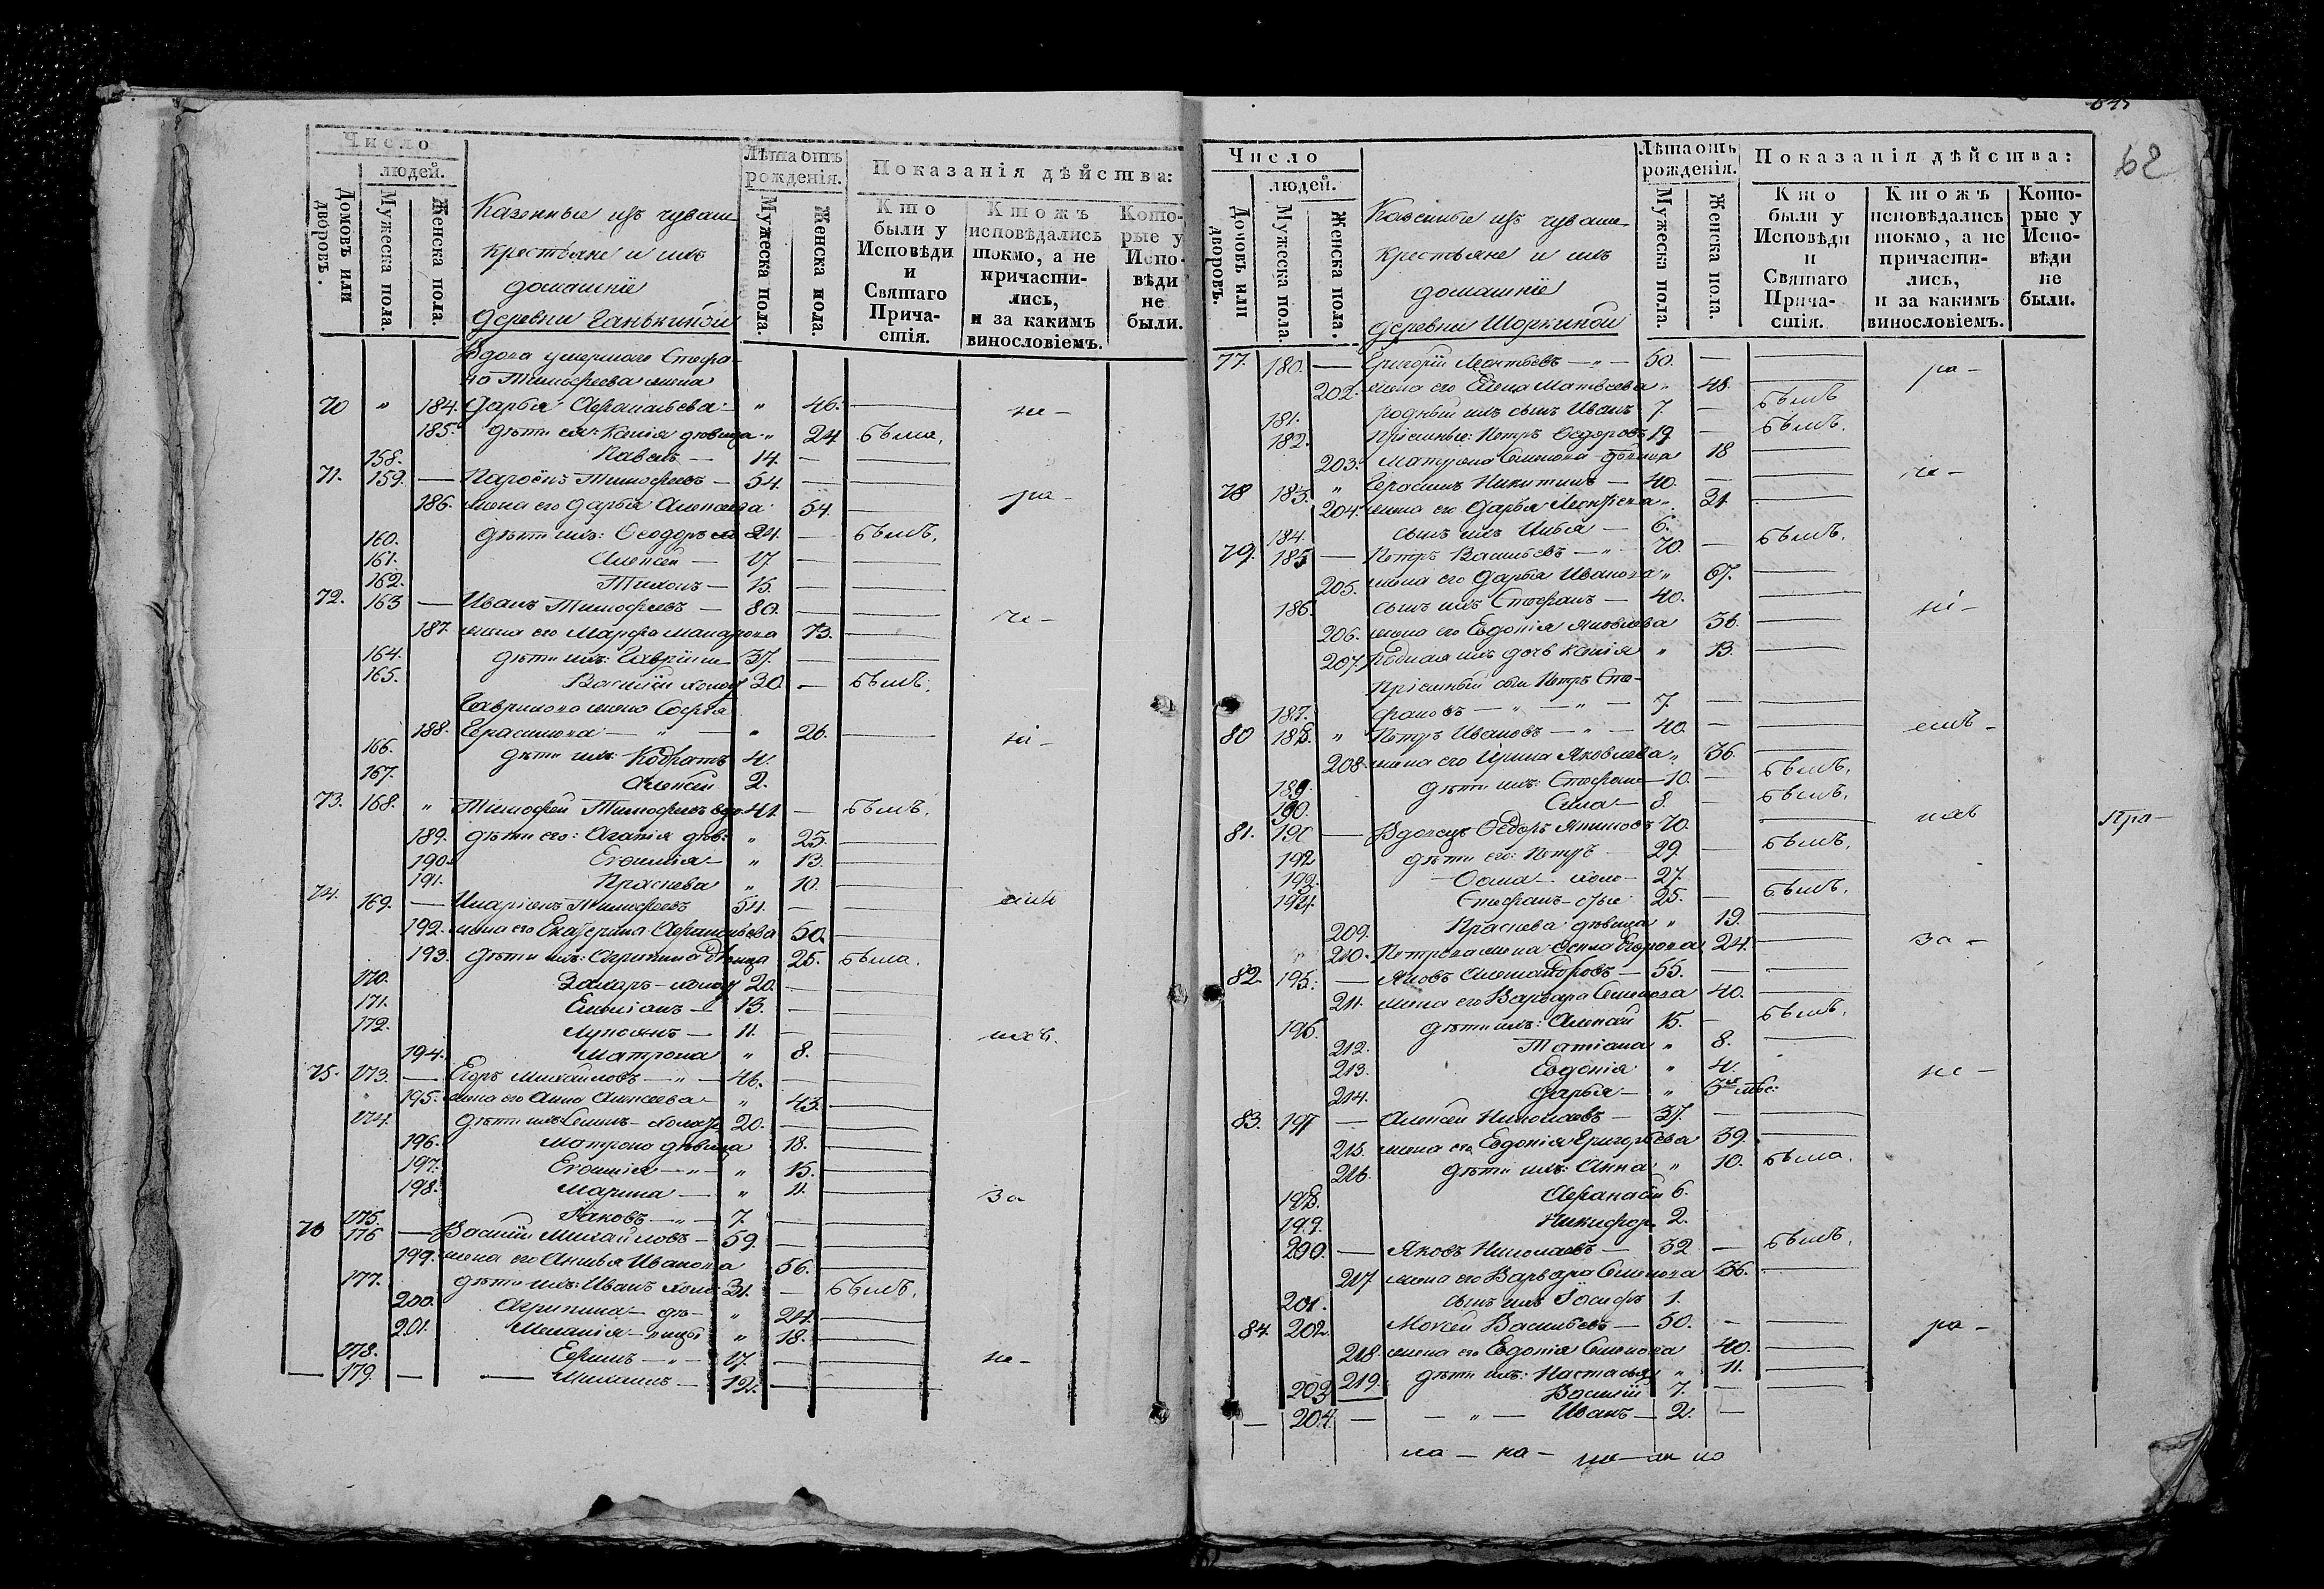 Число
людей.
Домовъ или дворовъ.
Мужеска пола.
Женска пола.
Казенные изъ чуваш
крестьяне и ихъ
домашніе
деревни Ганькиной
Лѣта отъ рожденія.
Мужеска пола.
Женска пола.
Показанія дѣйства:
Кто были у Исповѣди и Святаго Причастія.
Ктожъ исповѣдались токмо, а не причастились, и за какимъ винословіемъ.
Которые у Исповѣди не были.
Вдова умершаго Стефа-
на Тимофеева жена
70 " 184. Дарья Афанасьева " 46. не-
185. дѣти ея: Ксенія дѣвица " 24 была,
158. Павелъ — 14. —
71. 159. — Тимофеевъ — 54. —
186. жена его Дарья Алексеева 54. ра-
160. дѣти ихъ: Феодоръ 24. — былъ,
161. Алексей — 17. —
162. Тихонъ — 15. —
72. 163 — Иванъ Тимофеевъ — 80. — че-
187. жена его Марфа Макарова 73.
164. дѣти ихъ: Гавріилъ 37. —
165. Василій холос 30 — былъ,
Гаврилова жена Софья
188. Герасимова — " — " 26. ні-
166. дѣти ихъ: Кодратъ 4.
167. Алексей 2.
73. 168. " Тимофей Тимофеевъ вдо. 41. — былъ,
189. дѣти его: Агапія дѣв. " 23.
190. Евфимія — " 13.
191. Праскева " 10.
74. 169. — Иларіонъ Тимофеевъ 54. — емъ
192. жена его Екатерина Афанасьева 50.
193. дѣти ихъ: Агрипина дѣвица 25. была.
170. Захаръ — холос 20. —
171. Емиліанъ — 13. —
172. Лукоянъ — 11. — ихъ.
194. Матрона " 8.
75. 173. — Егоръ Михайловъ — " — 46. —
195. жена его Анна Алексеева " 43.
174. дѣти ихъ: Семенъ — холос 20. —
196. Матрона дѣвица 18.
197. Евфимія — " — " 15.
198. Марина — " 11. за
175. Іаковъ — " — 7. —
76 176 — Василій Михайловъ — 59. —
199. жена его Анисья Иванова 56.
177. дѣти ихъ: Иванъ холо. 31. — былъ,
200. Агрипина — дѣ- " 24.
201. Меланія — вицы " 18.
178. Ефимъ — " — 17. — не-
179. — — Михаилъ — 12. —
645
62
Число
людей.
Домовъ или дворовъ.
Мужеска пола
Женска пола.
Казенные изъ чуваш
крестьяне и ихъ
домашніе
деревни Шоркиной
Лѣта отъ рожденія.
Мужеска пола.
Женска пола.
Показанія дѣйства:
Кто были у Исповѣди и Святаго Причастія.
Ктожъ исповѣдались токмо, а не причастились, и за какимъ винословіемъ.
Которые у Исповѣди не были.
77. 180. — Григорій Леонтьевъ — " — 50. — ра-
202. жена его Елена Матвеева " 48.
181. родный ихъ сынъ Иванъ 7. — былъ
182. пріемные: Петръ Феодоровъ 19. — былъ.
203. Матрона Семенова 18
78 183. " Герасимъ Никитинъ — 40. — че-
204. жена его Дарья " 21.
184. сынъ ихъ Илья — 6.
79. 185 — Петръ Васильевъ — " 70. — былъ.
205. жена его Дарья Иванова " 67.
186. сынъ ихъ Стефанъ — 40. ні-
206. жена его Евдокія Яковлева 36.
207. Родная ихъ дочь Ксенія " 13.
Пріемный сын Петръ Сте-
187. фановъ — " — " — 7. —
80 188. " Петръ Ивановъ — " — 40. — емъ-
208. жена его Ирина Яковлева " 36.
189. дѣти ихъ: Стефанъ — 10. — былъ,
190. Сила — 8. — былъ.
81. 191 — Вдовецъ Феодоръ Якимовъ 70. ихъ
192 дѣти его: Петръ 29. — былъ,
193. — холо- 27.
194. Стефанъ — стые 25. — былъ.
209. Праскева дѣвица " 19.
210. Петрова жена Егорова 24. за-
82. 195. — Яковъ Александровъ — 55. —
211. жена его Варвара Семенова 40.
196. дѣти ихъ: Алексей 15. — былъ.
212. Татіана " 8.
213. Евдокія " 4. не-
214. Дарья — " 3 мѣс.
83. 197 — Алексей Николаевъ — 37. —
215. жена его Евдокія Григорьева 39.
216. дѣти ихъ: Анна " 10. была.
198. Афанасій 6.
199. Никифор 2.
200. — Яковъ Николаевъ — 32 — былъ.
217 жена его Варвара Семенова 36.
201. сынъ ихъ Іосифъ 1.
84. 202. Моисей Васильевъ — 50. — ра-
218. жена его Евдокія Семенова 40.
219. дѣти ихъ: Настасья " 11.
203 Василій 7. —
— 204. — — " — Иванъ — 2. —
Пра-